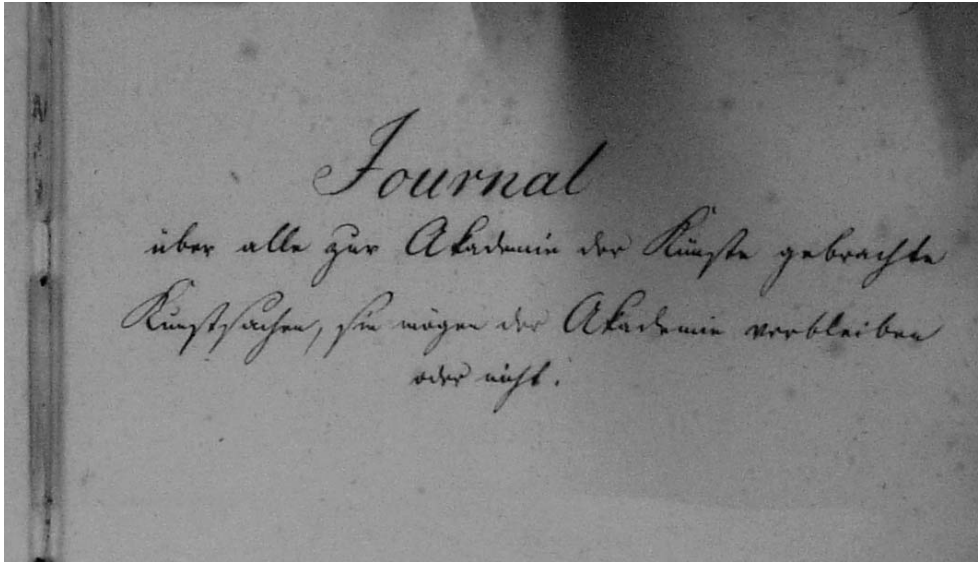 Journal
über alle zur Akademie der Künste gebrachte
Kunstsachen, sie mögen der Akademie verbleiben
oder nicht.